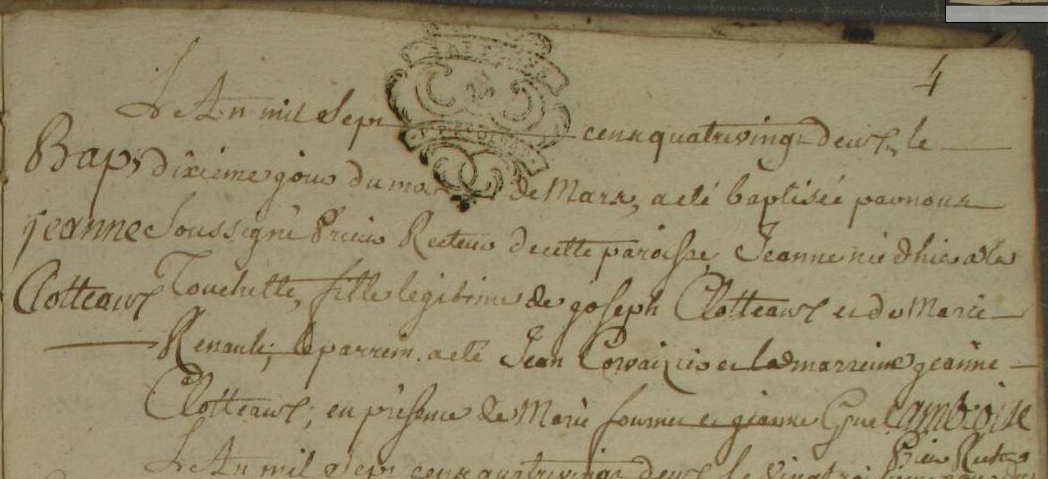 4
L'An mil Sept cens quatrevingt deux, le
Bap. dixième jour du mois de Mars, a eté baptisée par nous
jeanne Soussigné Prieur Recteur de cette paroisse, Jeanne née d'hier a la
Clotteaux Touchette, fille legitime de joseph Clotteaux et de Marie
Renault; le parrein a eté Jean et la marreine jeanne
Clotteaux; en présence de Marie fournier et jeanne
Ambroise
Prieur Recteur
L'An mil Sept cens quatrevingt deux le vingt